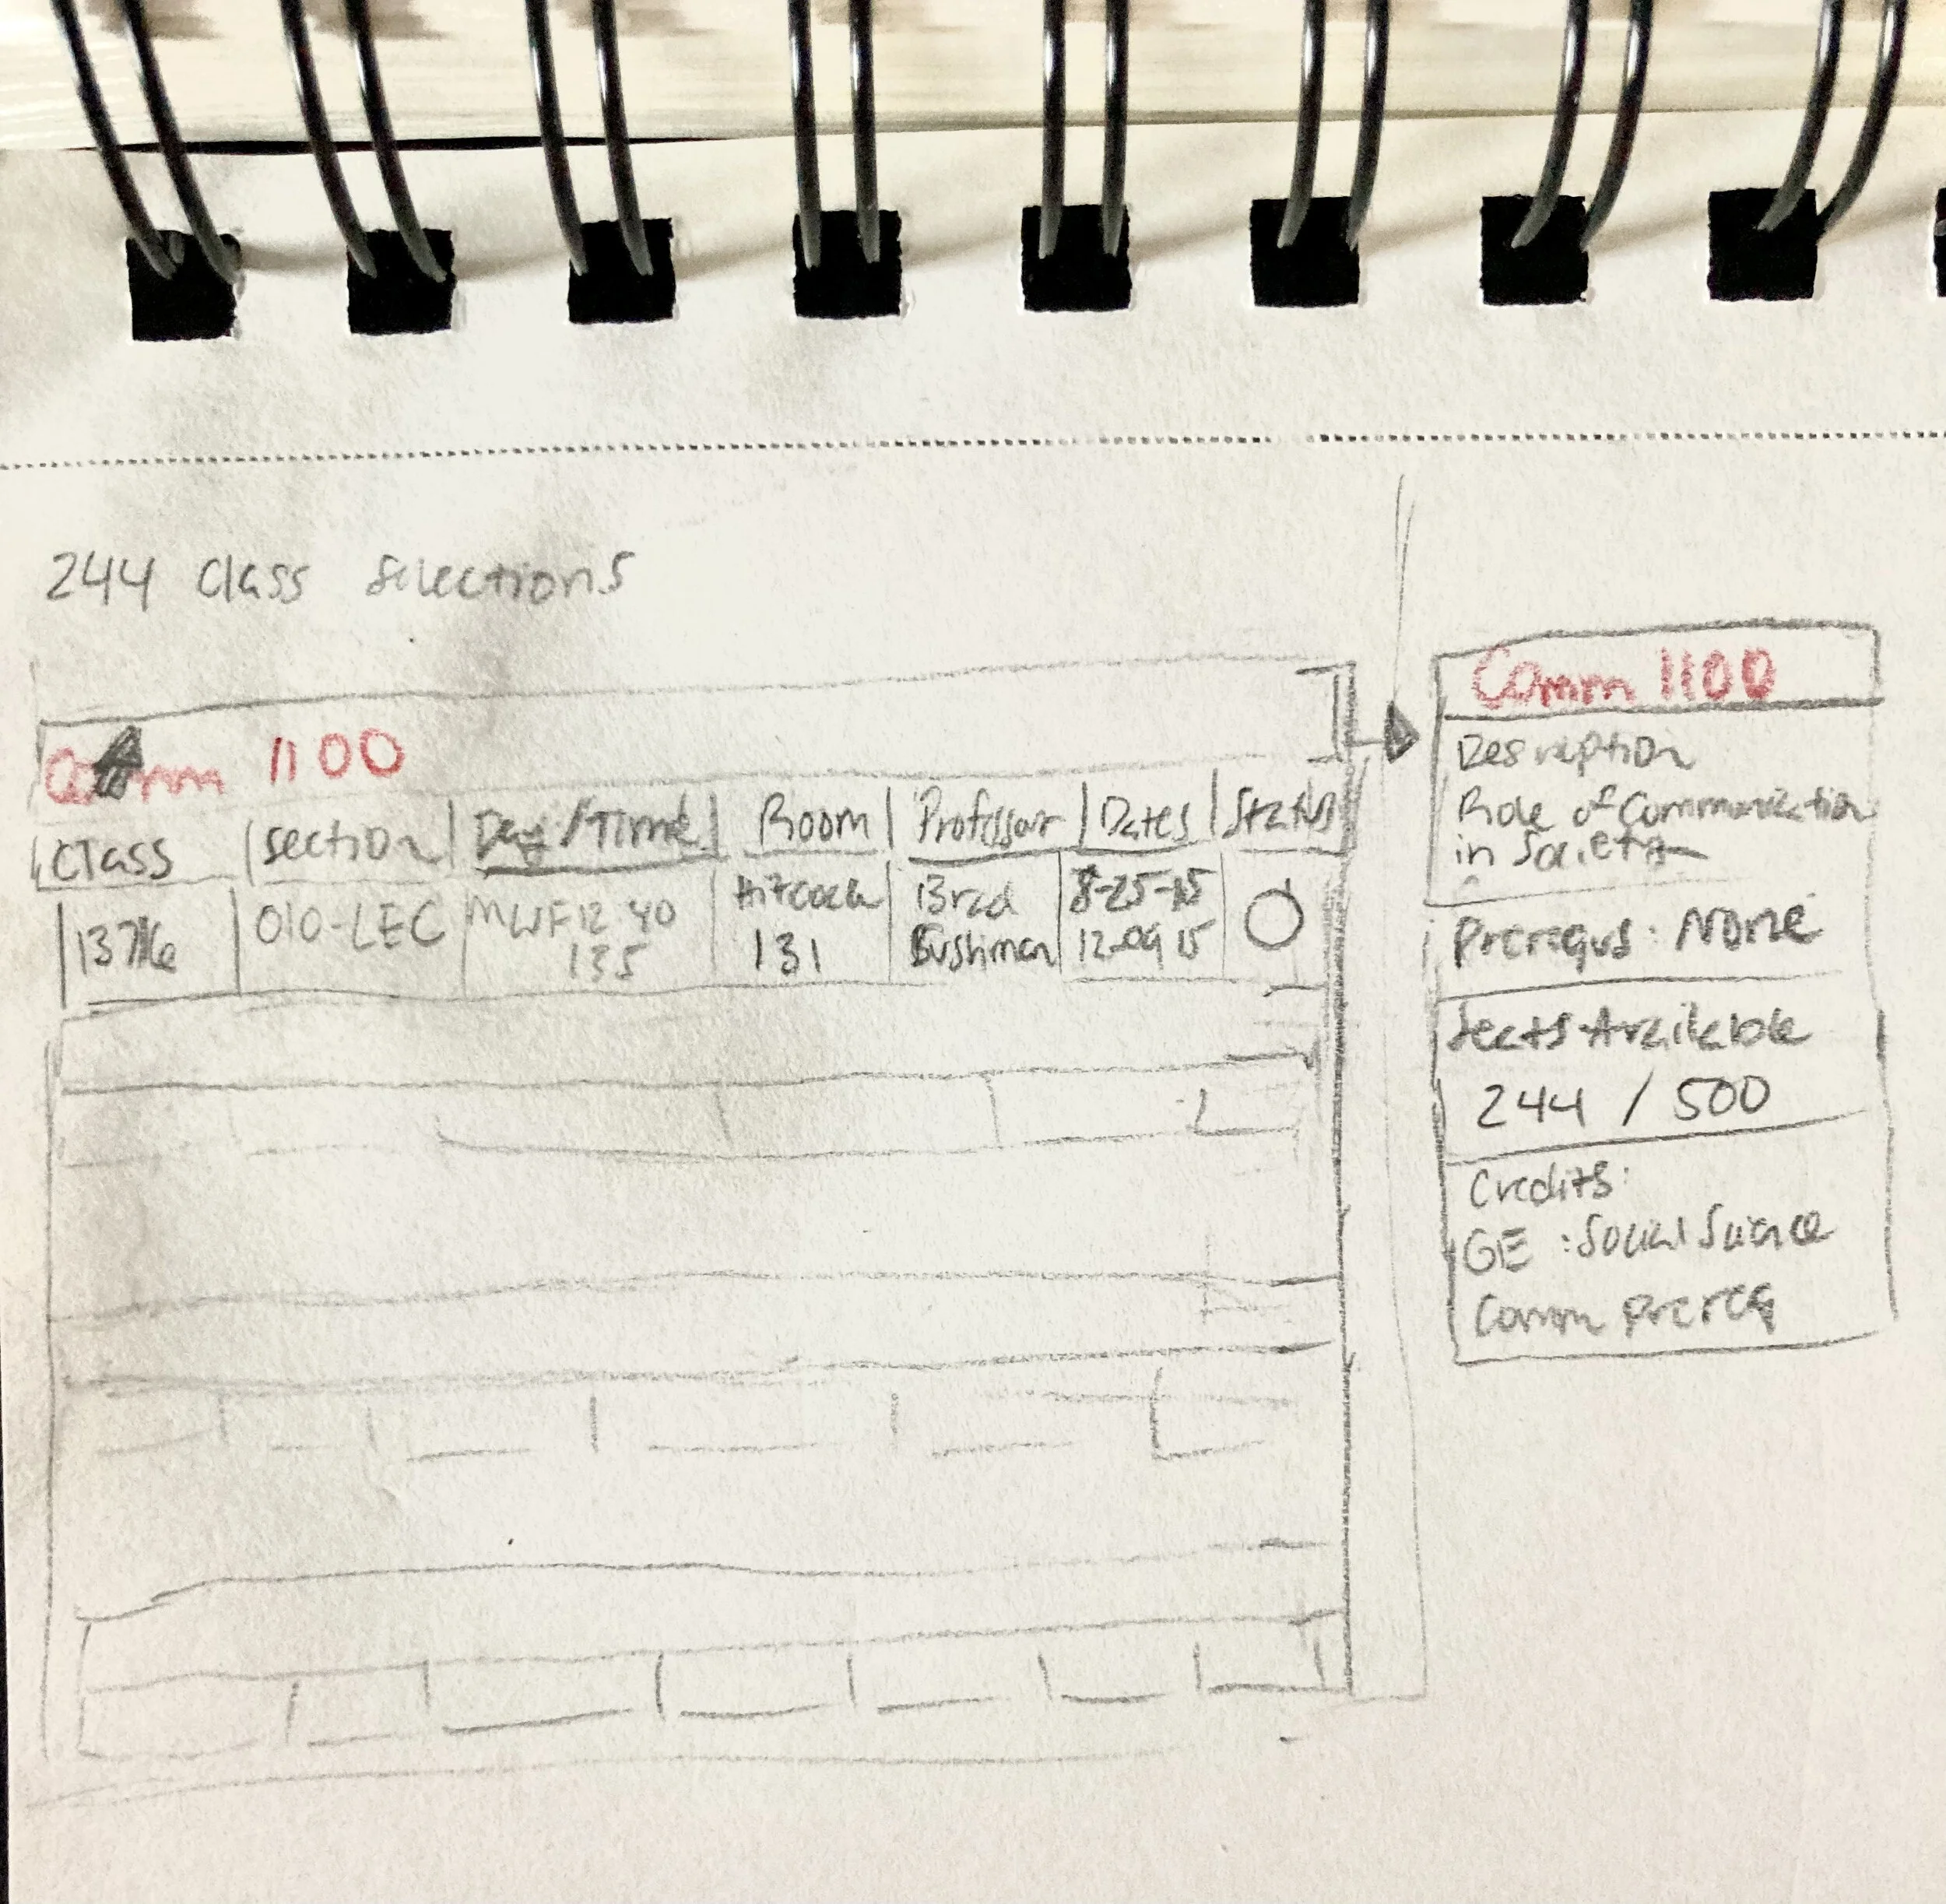 244 Class Selections
Comm 1100
Class | Section | Day/Time | Room | Professor | Dates | Status
010-LEC MWF 12 40 Hitcock Brad 8-25-15
135 131 Bushman 12-09 15
Comm 1100
Desription
Role of Communication
in Society
Prereqs: None
Seats Available
244 / 500
Credits:
GE : Social Science
Comm Prereq